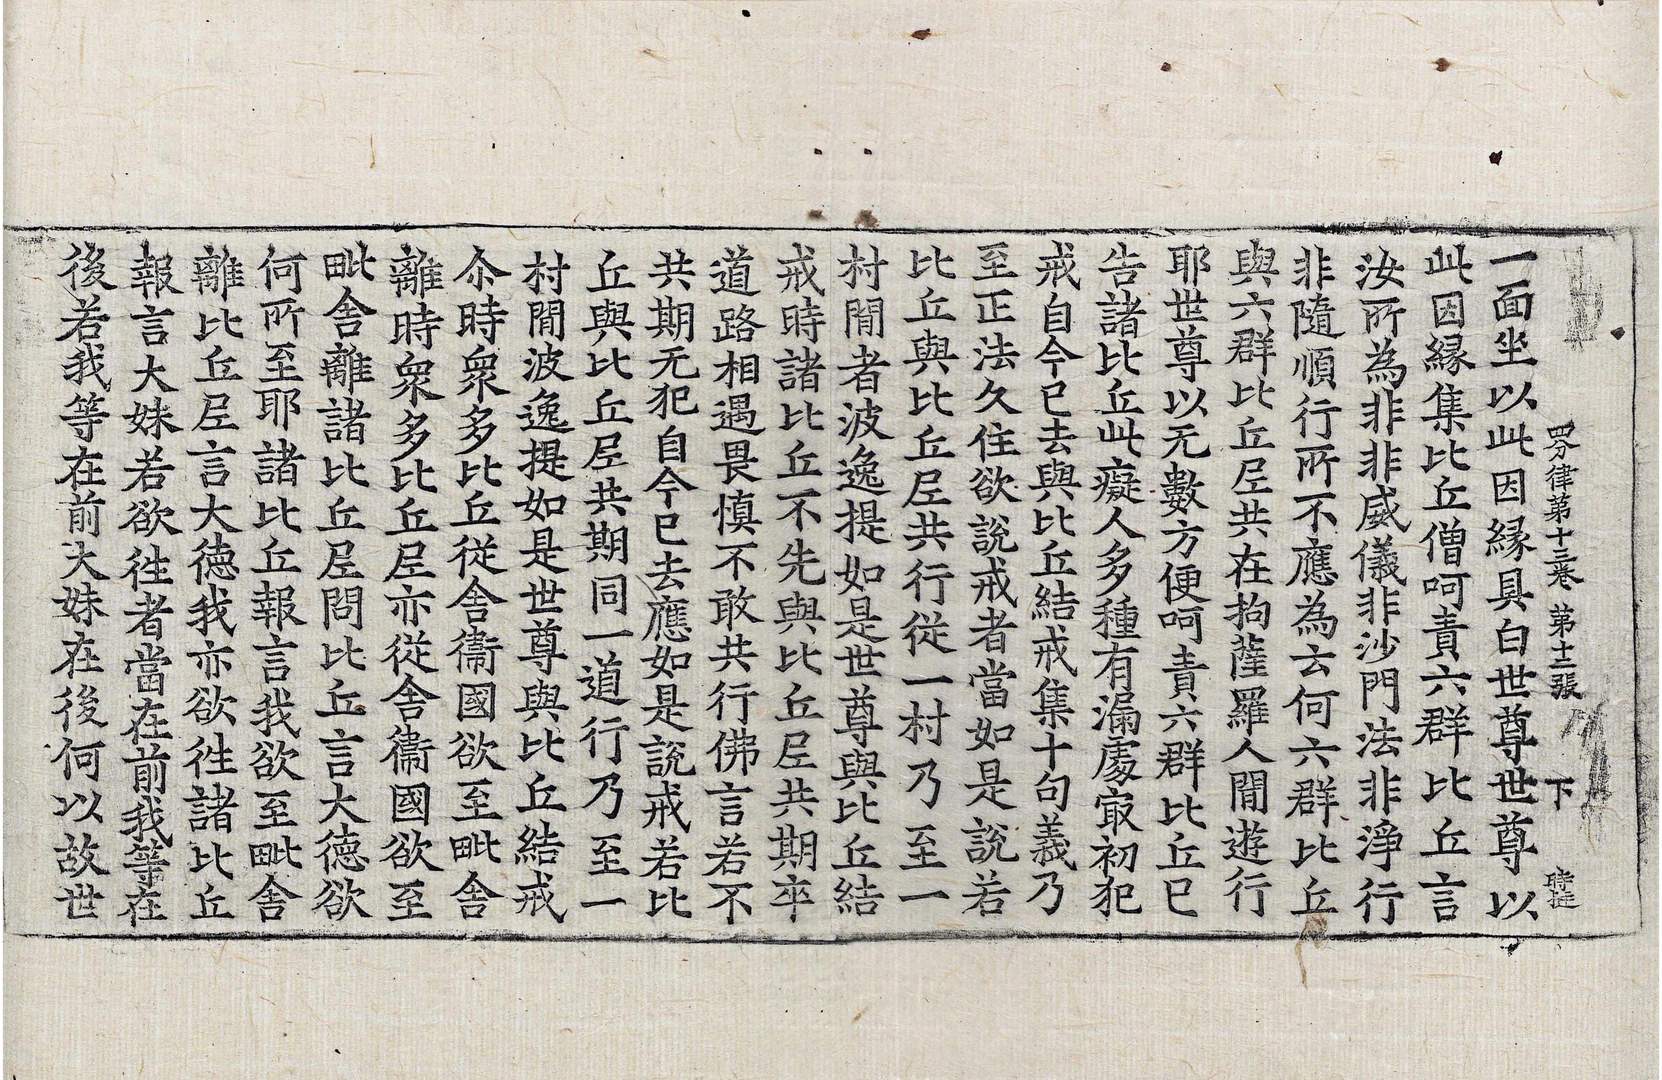 四分律第十三卷 第十二張 下
一面坐以此因緣具白世尊世尊以
此因緣集比丘僧呵責六群比丘言
汝所為非非威儀非沙門法非淨行
非隨順行所不應為云何六群比丘
與六群比丘尼共在拘薩羅人間遊行
耶世尊以无數方便呵責六群比丘已
告諸比丘此癡人多種有漏處㝡初犯
戒自今已去與比丘結戒集十句義乃
至正法久住欲說戒者當如是說若
比丘與比丘尼共行從一村乃至一
村間者波逸提如是世尊與比丘結
戒時諸比丘不先與比丘尼共期卒
道路相遇畏慎不敢共行佛言若不
共期无犯自今已去應如是說戒若比
丘與比丘尼共期同一道行乃至一
村間波逸提如是世尊與比丘結戒
尒時眾多比丘從舍衞國欲至毗舍
離時眾多比丘尼亦從舍衞國欲至
毗舍離諸比丘尼問比丘言大德欲
何所至耶諸比丘報言我欲至毗舍
離比丘尼言大德我亦欲往諸比丘
報言大妹若欲往者當在前我等在
後若我等在前大妹在後何以故世